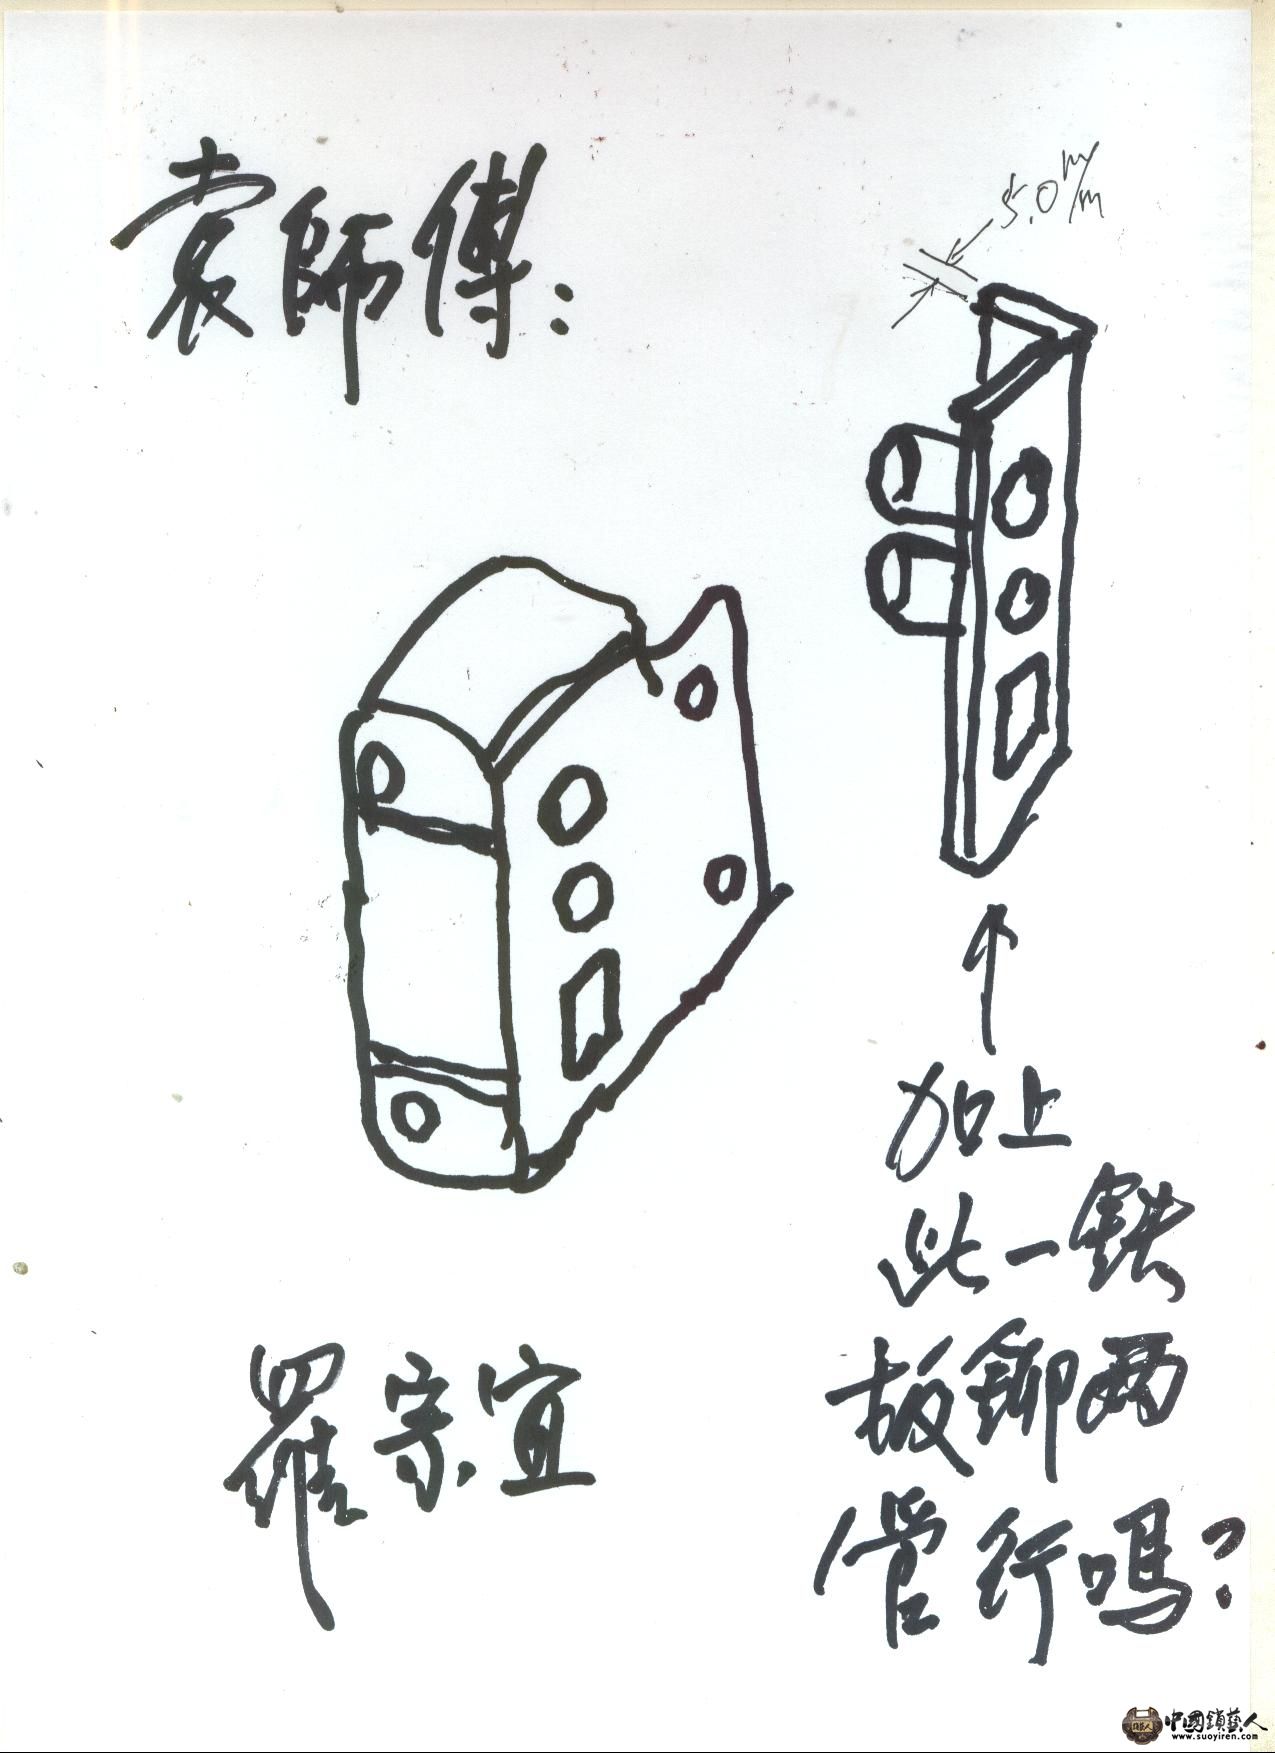 袁師傅：
5.0 m/m
加上
此一鉄
板鉚兩
管行嗎？
羅宗宜
中國鎖藝人
www.suoyiren.com